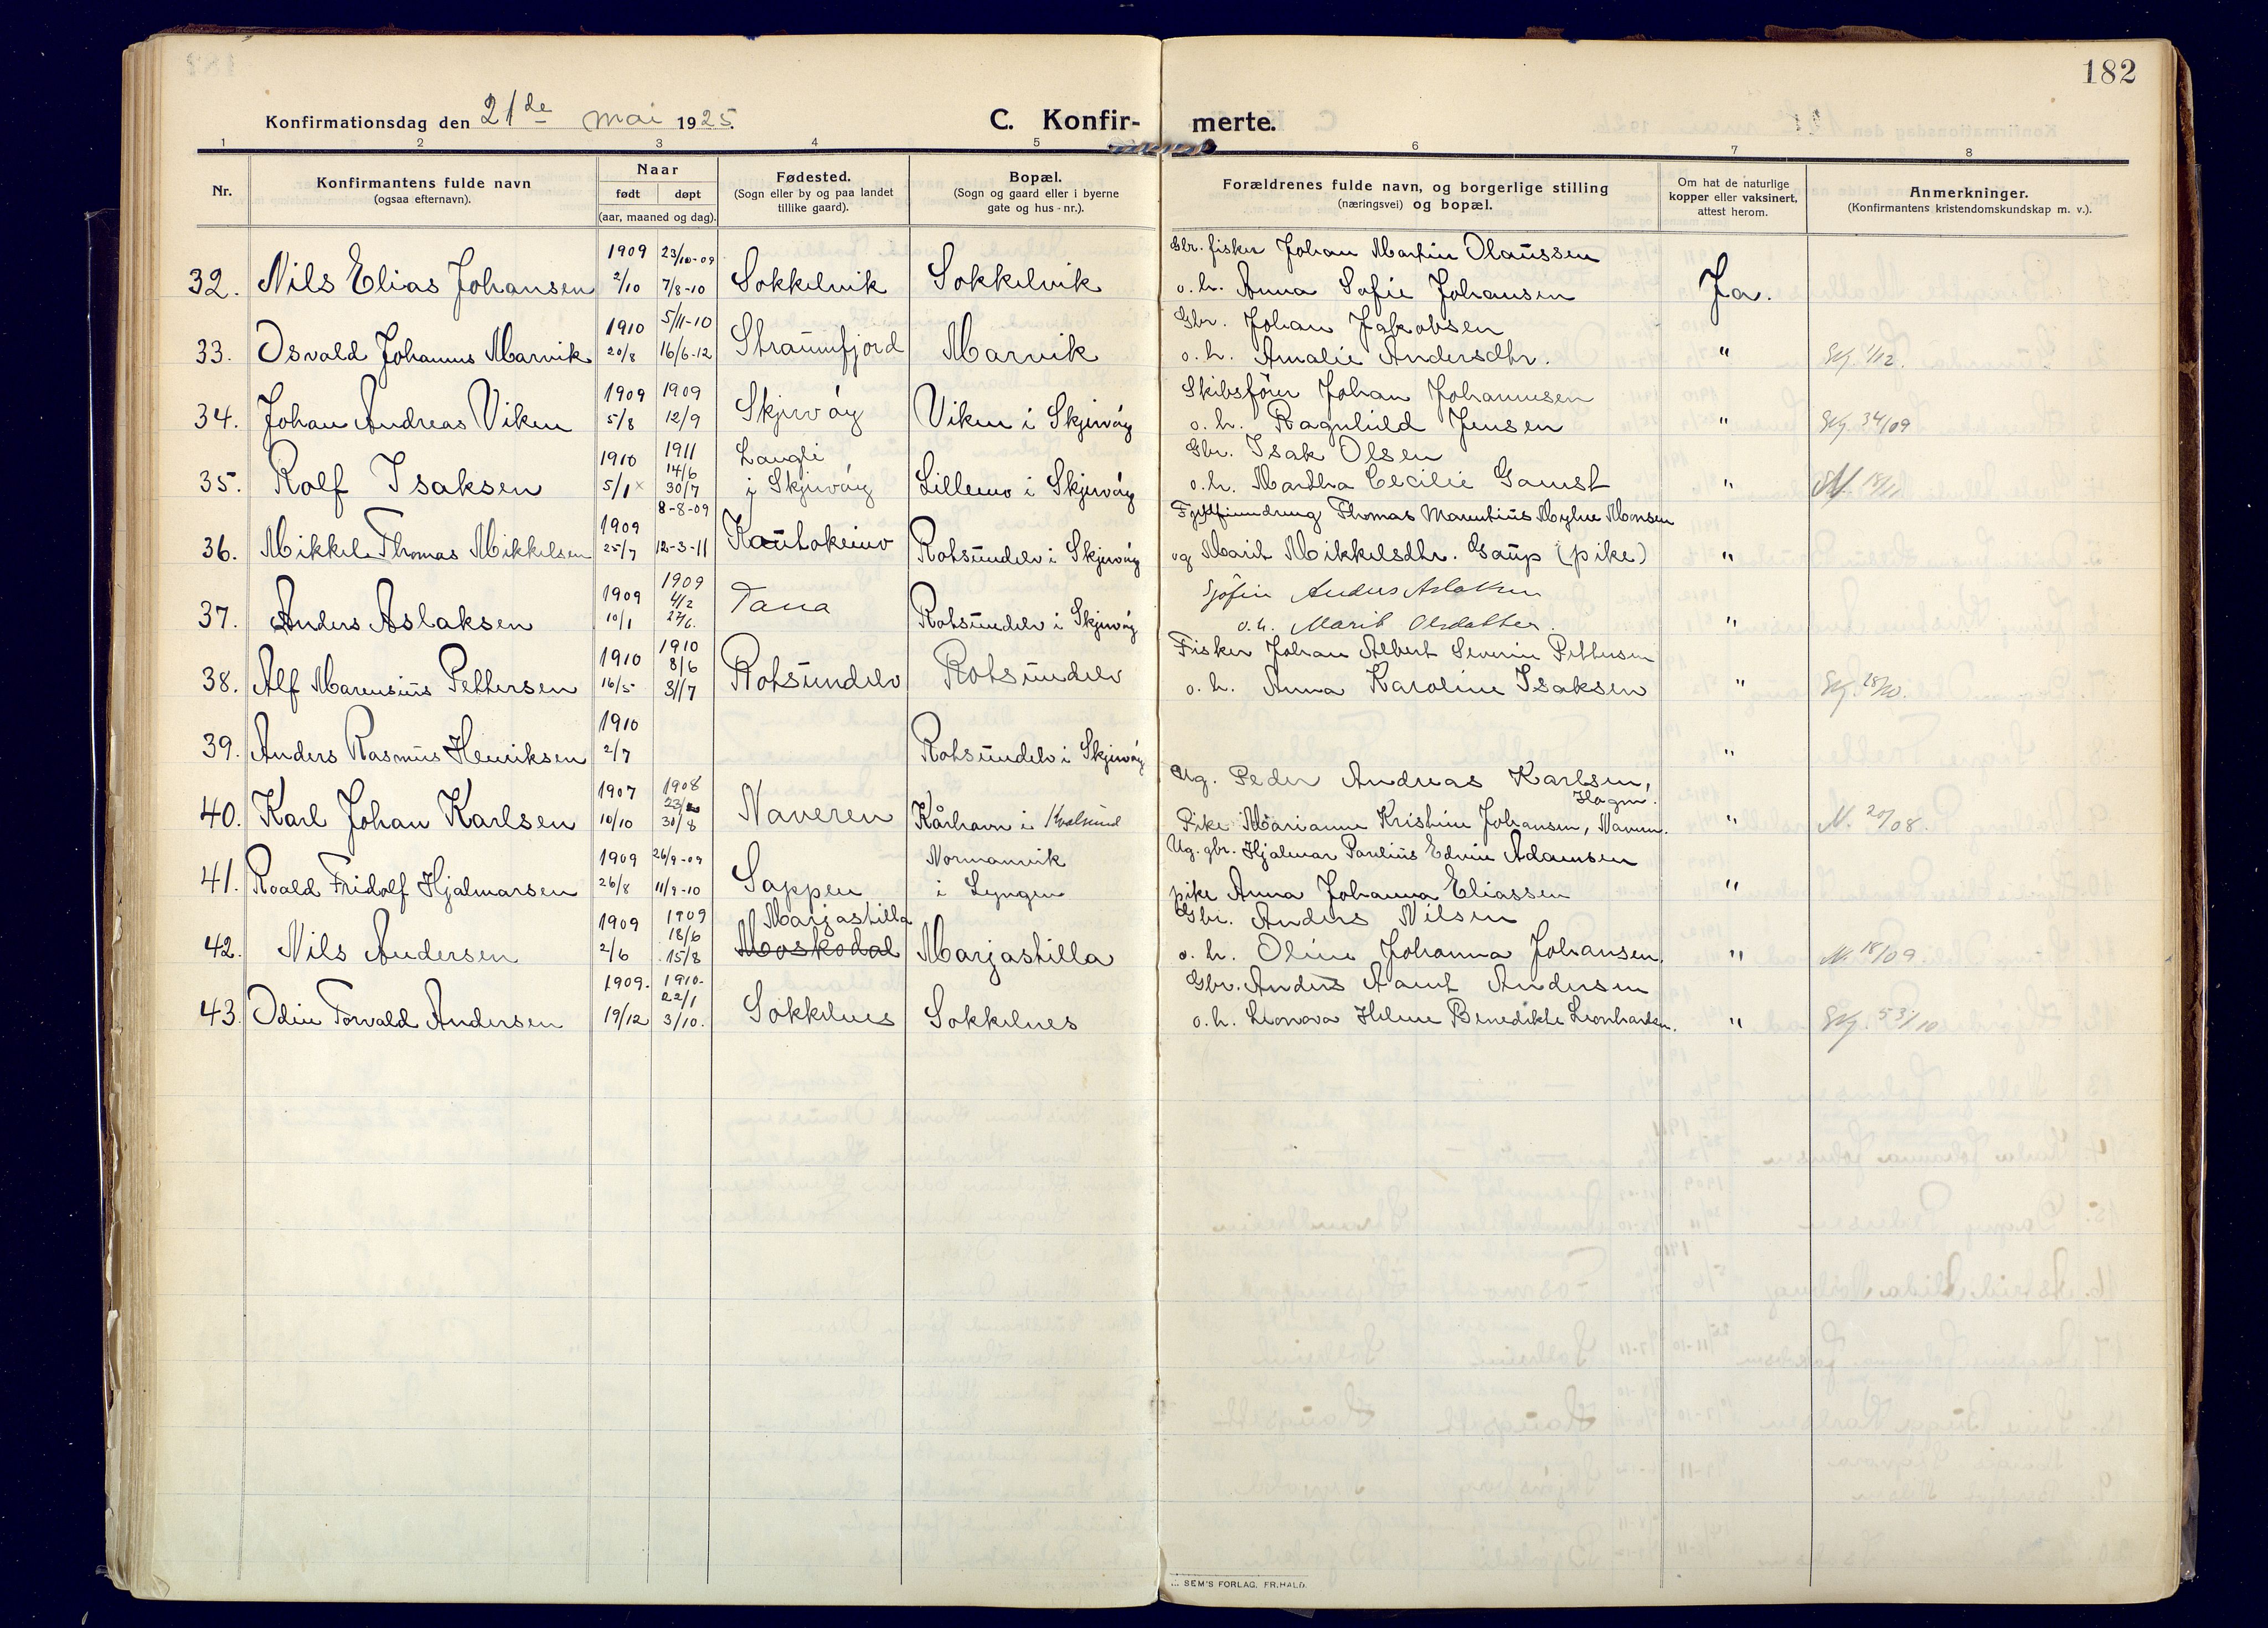 182
Konfirmationsdag den 21de mai 1925.
C. Konfirmerte.
1 2 3 4 5 6 7 8
Nr.
Konfirmantens fulde navn
(ogsaa efternavn).
Naar
født døpt
(aar, maaned og dag).
Fødested.
(Sogn eller by og paa landet
tillike gaard).
Bopæl.
(Sogn og gaard eller i byerne
gate og hus-nr.).
Forældrenes fulde navn, og borgerlige stilling
(næringsvei) og bopæl.
Om hat de naturlige
kopper eller vaksinert,
attest herom.
Anmerkninger.
(Konfirmantens kristendomskundskap m. v.).
1909 23/10-09 Gbr. fisker Johan Martin Olaussen
32. Nils Elias Johansen 2/10 7/8-10 Sokkelvik Sokkelvik o. h. Anna Sofie Johansen Ja.
1910 5/11-10 Gbr. Johan Jakobsen
33. Osvald Johannes Marvik 20/8 16/6-12 Straumfjord Marvik o. h. Amalie Andersdtr. "
1909 1909 Skibsfører Johan Johannesen
34. Johan Andreas Viken 5/8 12/9 Skjervøy Viken i Skjervøy o. h. Ragnhild Jensen " 34/09
1910 1911 14/6 Langli Gbr. Isak Olsen
35. Rolf Isaksen 5/1 x 30/7 i Skjervøy Lillemo i Skjervøy o. h. Martha Cecilie Gamst "
1909 8-8-09 Thomas Marentius Monsen
36. Mikkel Thomas Mikkelsen 25/7 12-3-11 Kautokeino Rotsundelv i Skjervøy og Marit Mikkelsdtr. Gaup (pike) "
1909 1909 4/2 Sjøfin Anders Aslaksen
37. Anders Aslaksen 10/1 27/6. Tana Rotsundelv i Skjervøy o. h. Marit Olsdatter. "
1910 1910 8/6 Fisker Johan Albert Severin Pettersen
38. Alf Marensius Pettersen 16/5 31/7 Rotsundelv Rotsundelv o. h. Anna Karoline Isaksen "
1910
39. Anders Rasmus Henriksen 2/7 Rotsundelv i Skjervøy "
1907 1908 Ug. Peder Andreas Karlsen,
40. Karl Johan Karlsen 10/10 30/8 Naveren Kårhavn i Kvalsund Pike Marianne Kristine Johansen, " N. 20/08.
1909 26/9-09 Normannvik Ug. gbr. Hjalmar Paulius Edvin Adamsen
41. Roald Fridolf Hjalmarsen 26/8 11/9-10 Sappen i Lyngen pike Anna Johanna Eliassen "
1909 1909 18/6 Marjastilla Gbr. Anders Nilsen
42. Nils Andersen 2/6 15/8 Moskodal Marjastilla o. h. Oline Johanna Johansen. " N. 18/09.
1909. 1910. 22/1 Gbr. Anders Aamt Andersen
43. Odin Torvald Andersen 19/12 3/10. Sokkelnes Sokkelnes o. h. Leonora Helene Benedikte Leonhardsen. " 53/10
SEM'S FORLAG, FR.HALD.